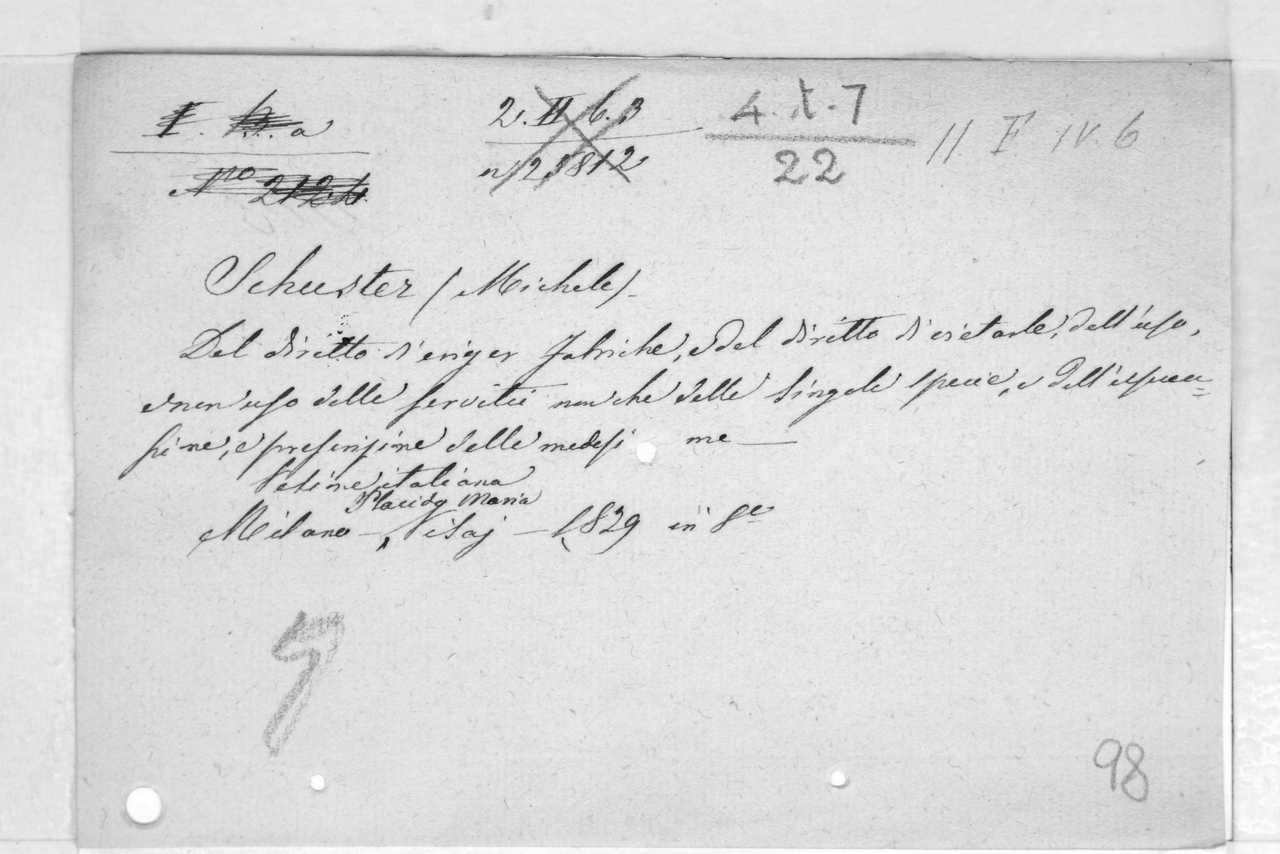 2. II 6. 3
4. t. 7
II F IV. 6
n 2, 1812
22
Schuster (Michele).
Del diritto d'eriger fabriche, e del diritto di vietarle, dell'uso,
e non uso delle servitù non che delle singole specie, e dell'espres=
sione, e prescrizione delle medesi me —
Versione italiana
Placido Maria
Milano — Visaj — 1829 in 8°
98